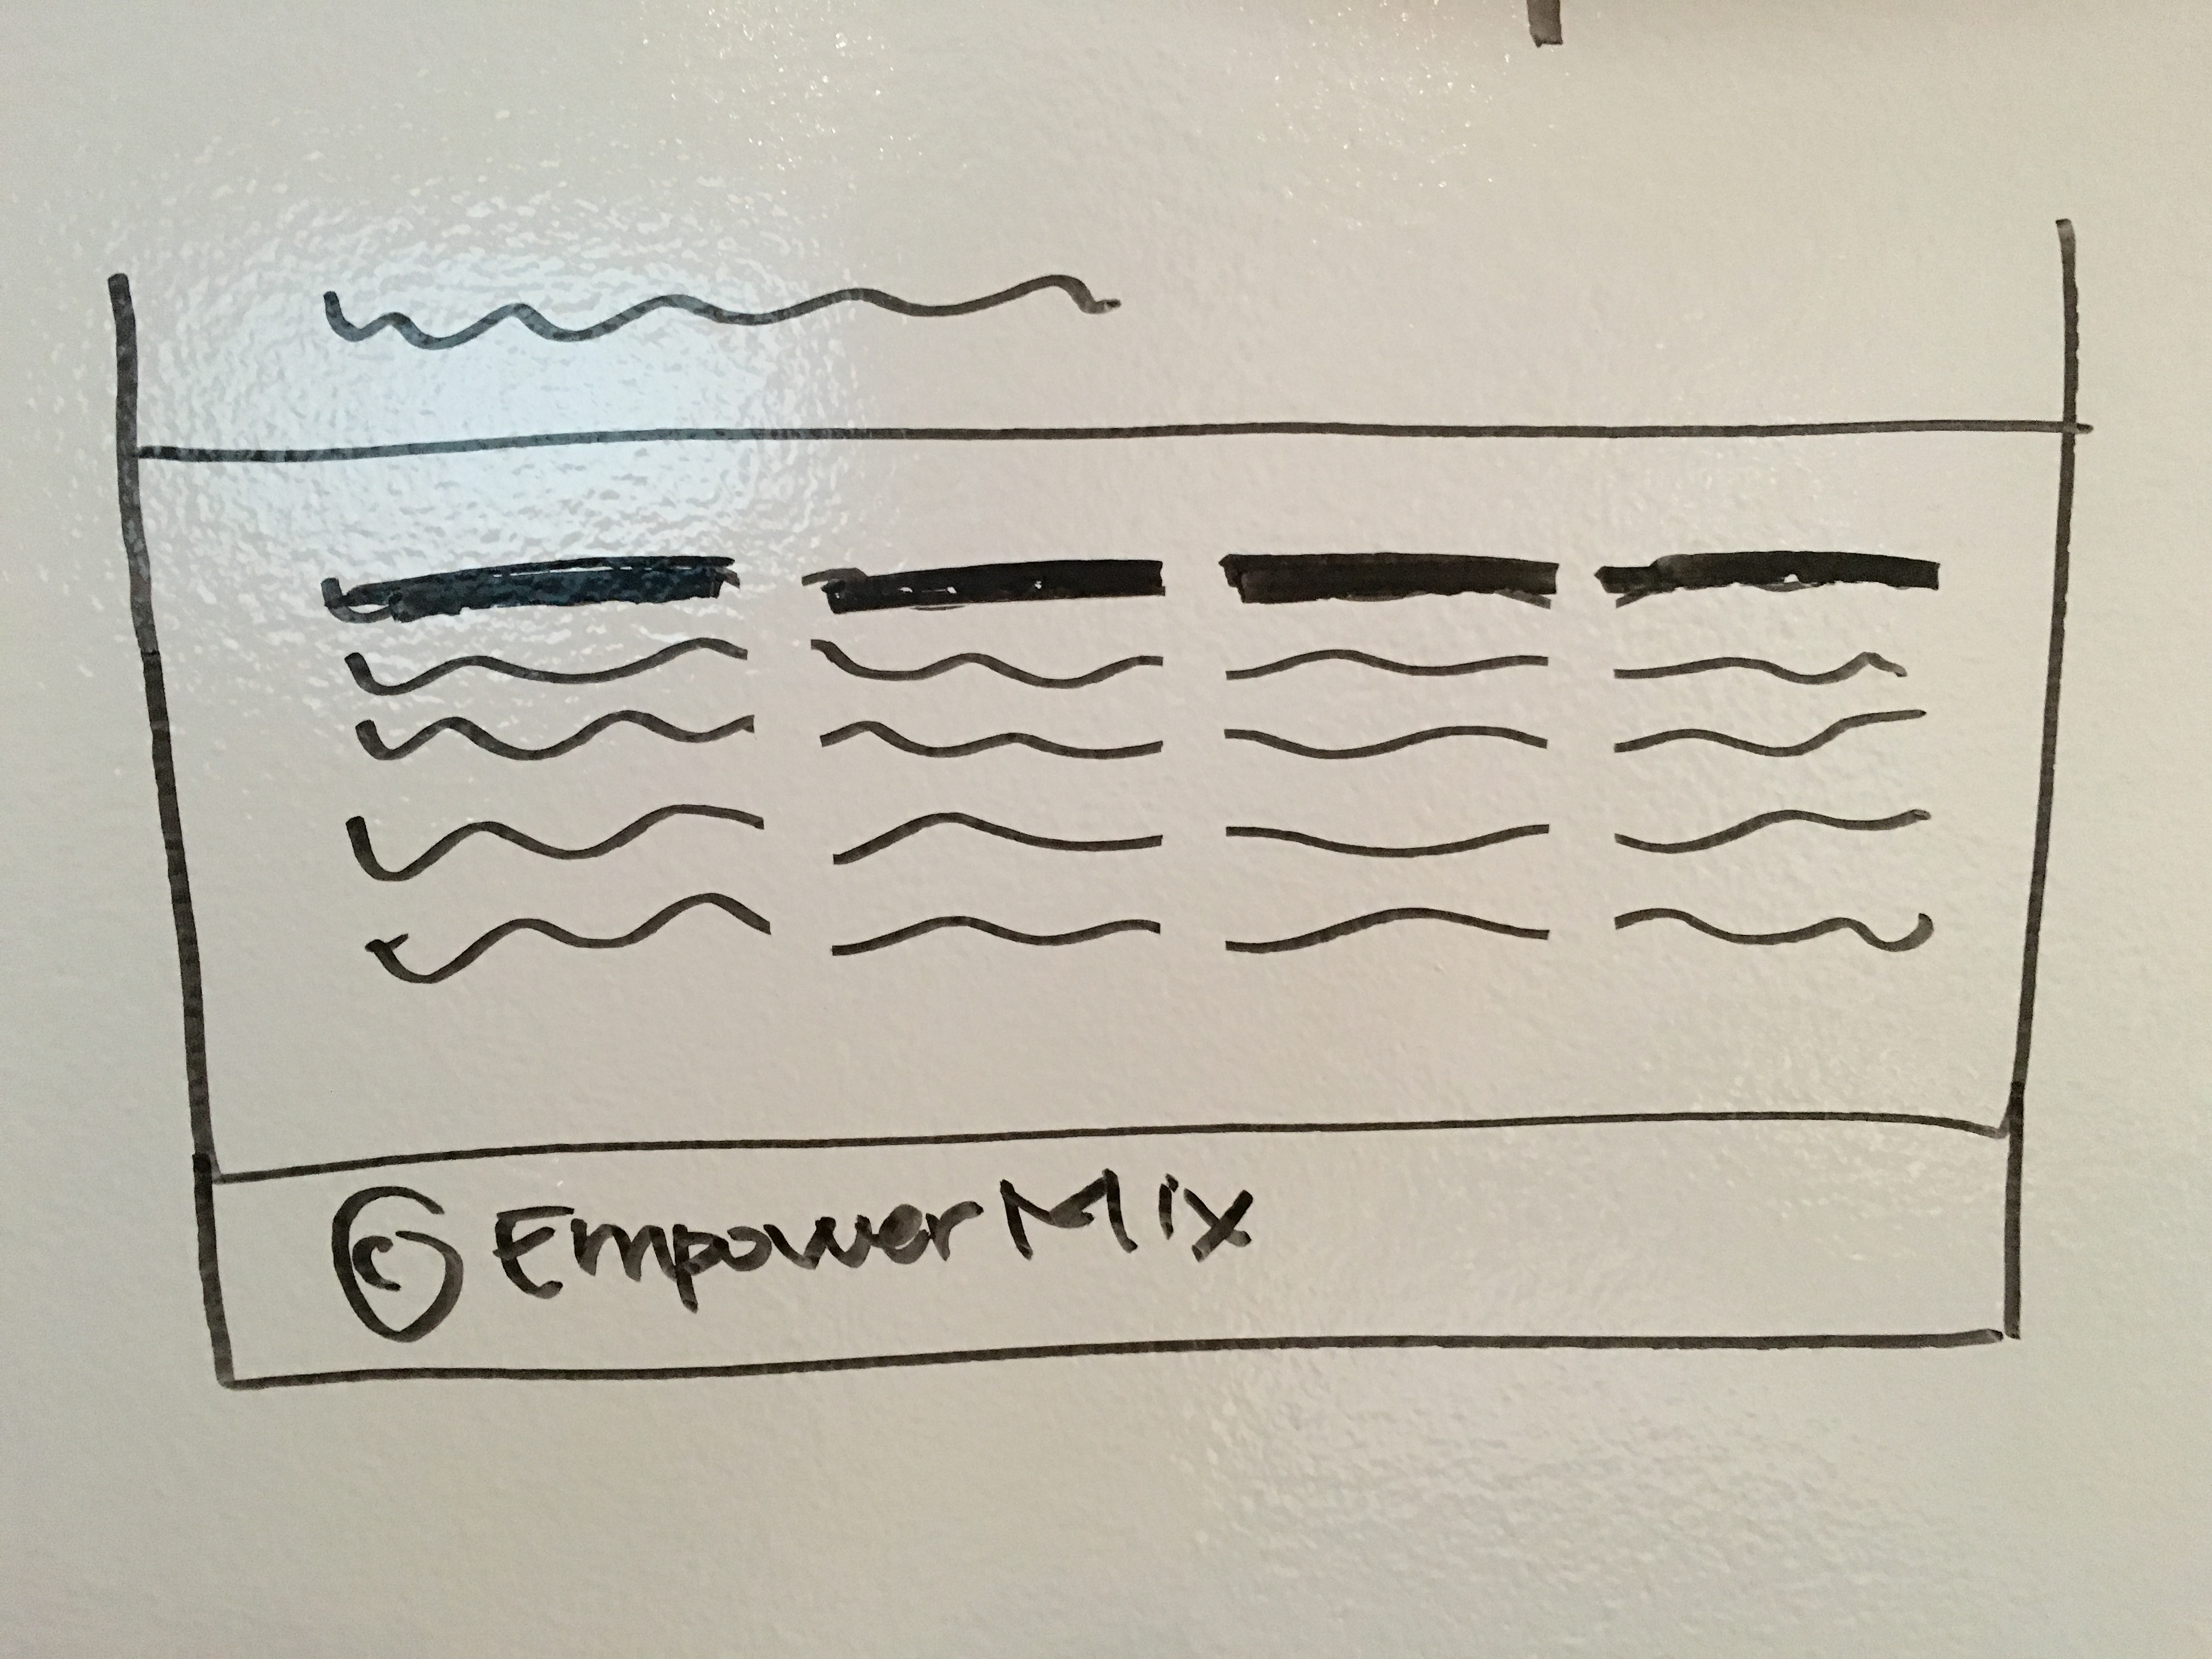 © EmpowerMix